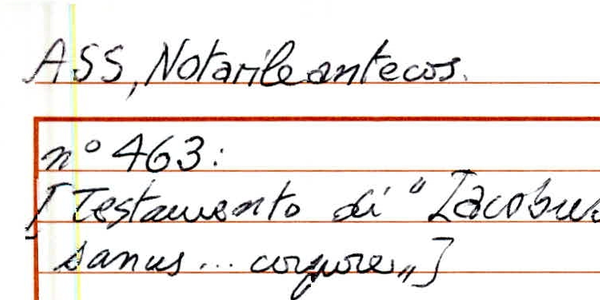 ASS, Notarile antecos.
n° 463:
[Testamento di "Iacobus
sanus... corpore"]